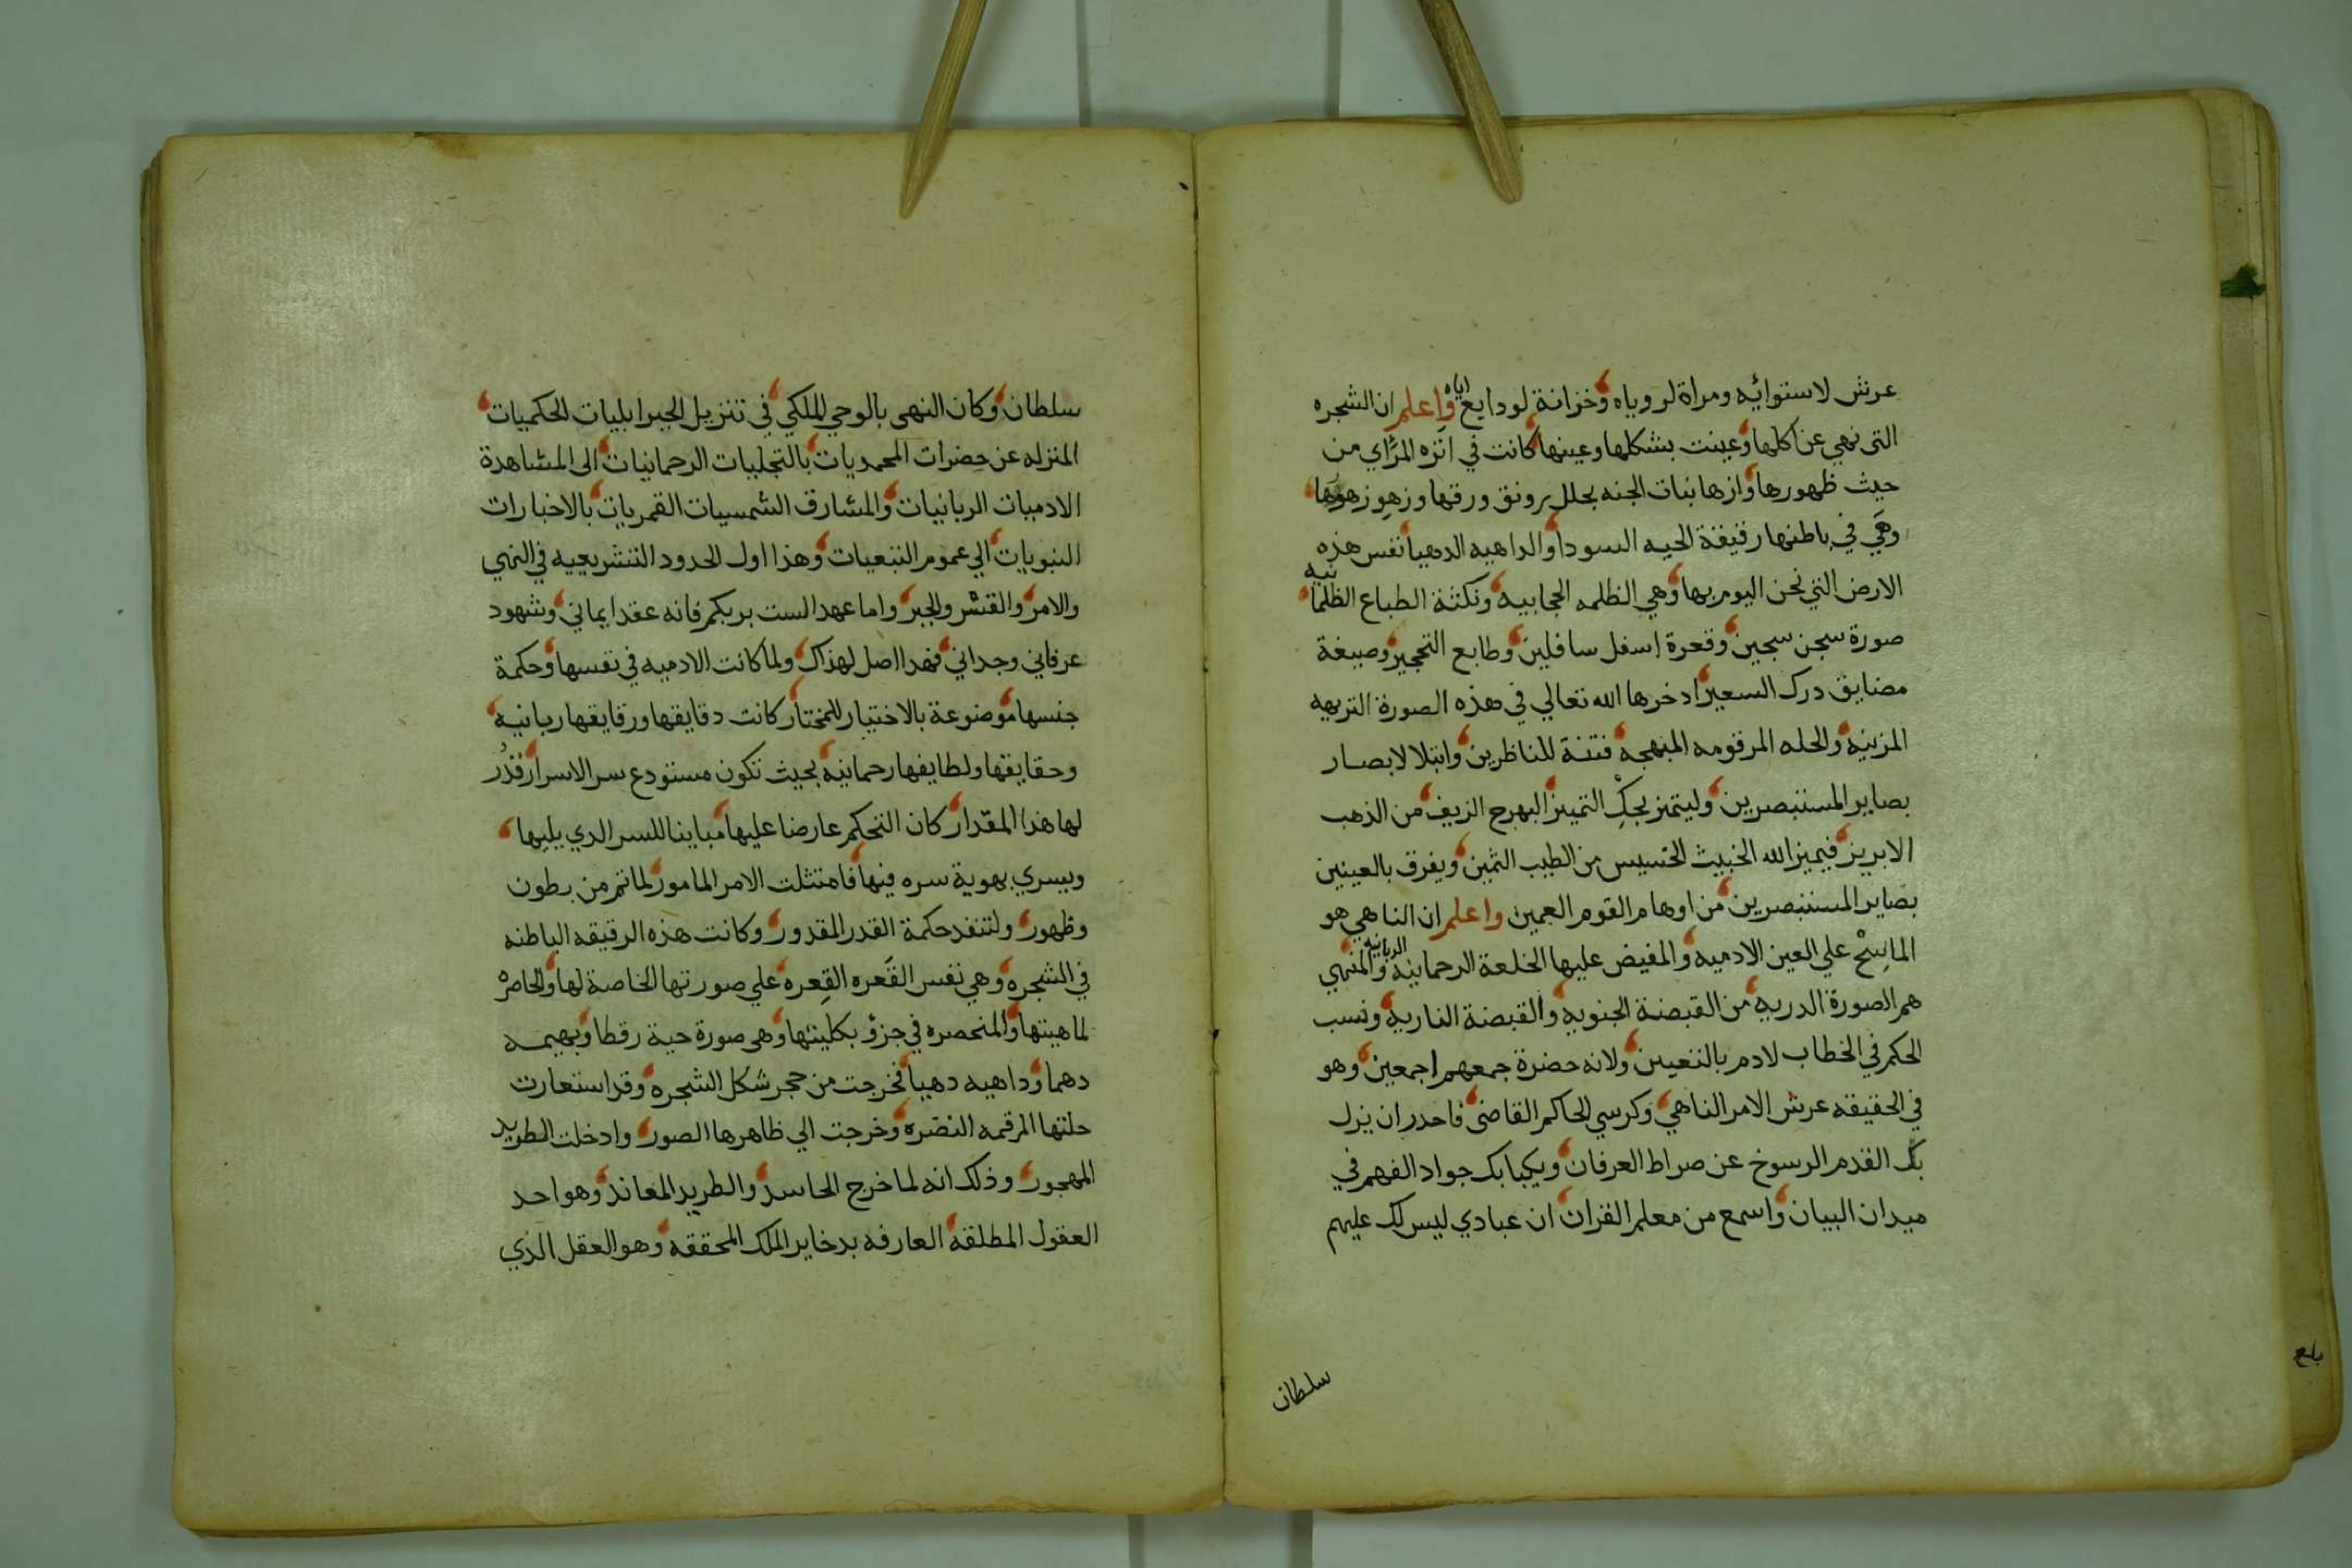 عرش لاستوائه ومراة لروياه وخزانة لودايع اياه واعلم ان الشجره
التى نهي عن اكلها وعينت بشكلها وعينها كانت في انزه المراي من
حيث ظهورها وازها نبات الجنه بحلل برونق ورقها وزهو زهورها
وهي في باطنها رقيقة الحيه السودا والداهيه الدهيا نفس هذه
الارض التي نحن اليوم بها وهي الظلمه الحجابيه ونكتة الطباع الظلمانيه
صورة سجن سجين وقعرة اسفل سافلين وطابع التحجير وصيغة
مضايق درك السعير ادخرها الله تعالي في هذه الصورة النزيهه
المزينه والحله المرقومه المبهجه فتنة للناظرين وابتلا لابصار
بصاير المستبصرين وليتميز بحك التمييز البهرج الزيف من الذهب
الابريز فيميز الله الخبيث الخسيس من الطيب الثمين ويفرق بالعينين
بصاير المستبصرين من اوهام القوم العمين واعلم ان الناهي هو
الماسح علي العين الادميه والمفيض عليها الخلعة الرحمانيه الربانيه والمنهي
هم الصورة الدريه من القبضة الجنوبه والقبضة الناريه ونسب
الحكم في الخطاب لادم بالتعيين ولانه حضرة جمعهم اجمعين وهو
في الحقيقه عرش الامر الناهي وكرسي الحاكم القاضى فاحدر ان يزل
بك القدم الرسوخ عن صراط العرفان ويكبا بك جواد الفهم في
ميدان البيان واسمع من معلم القران ان عبادي ليس لك عليهم
سلطان
سلطان وكان النهى بالوحي الملكي في تنزيل الجبرايليات الحكميات
المنزله عن حضرات المحمديات بالتجليات الرحمانيات الى المشاهدة
الادميات الربانيات والمشارق الشمسيات القمريات بالاخبارات
النبويات الي عموم التبعيات وهذا اول الحدود التشريعيه في النهي
والامر والقشر والجبر واما عهد الست بربكم فانه عقد ايماني وشهود
عرفاني وجداني فهدا اصل لهذاك ولما كانت الادميه في نفسها وحكمة
جنسها موضوعة بالاختيار للمختار كانت دقايقها ورقايقها ربانيه
وحقايقها ولطايفها رحمانيه بحيث تكون مستودع سر الاسرار فقدر
لها هذا المقدار كان التحكم عارضا عليها مباينا للسر الدي يليها
ويسري بهوية سره فيها فامتثلت الامر المامور لما تم من بطون
وظهور ولتنفد حكمة القدر المقدور وكانت هذه الرقيقه الباطنه
في الشجره وهي نفس القعره القعره علي صورتها الخاصة لها والحاصر
لماهيتها والمنحصره في جزؤ بكليتها وهى صورة حية رقطا وبهيمه
دهما وداهيه دهيا فخرجت من حجر شكل الشجره وقد استعارت
حلتها المرقمه النضره وخرجت الي ظاهرها الصور وادخلت الطريد
المهجور وذلك انه لما خرج الحاسد والطريد المعاند وهو احد
العقول المطلقة العارفه بدخاير الملك المحققه وهو العقل الذي